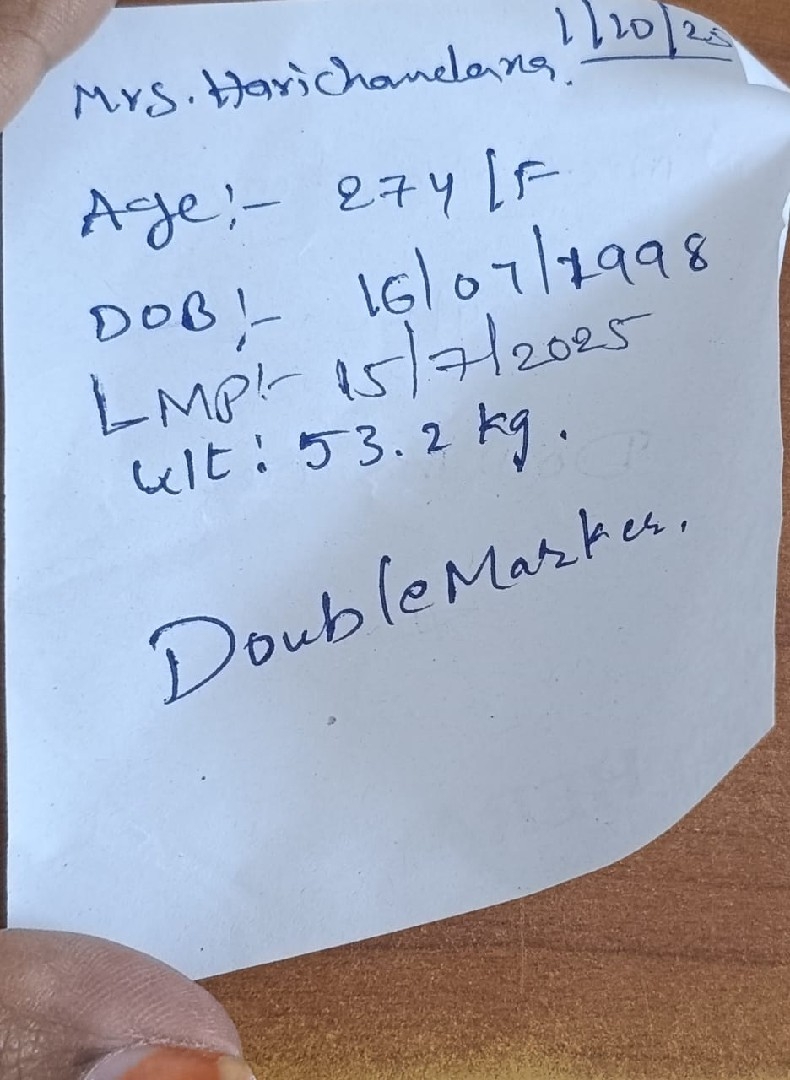 1/10/25
Mrs. Harichandana.
Age:- 27y/F
DOB:- 16/07/1998
LMP:- 15/7/2025
Wt: 53.2 kg.
Double Marker.